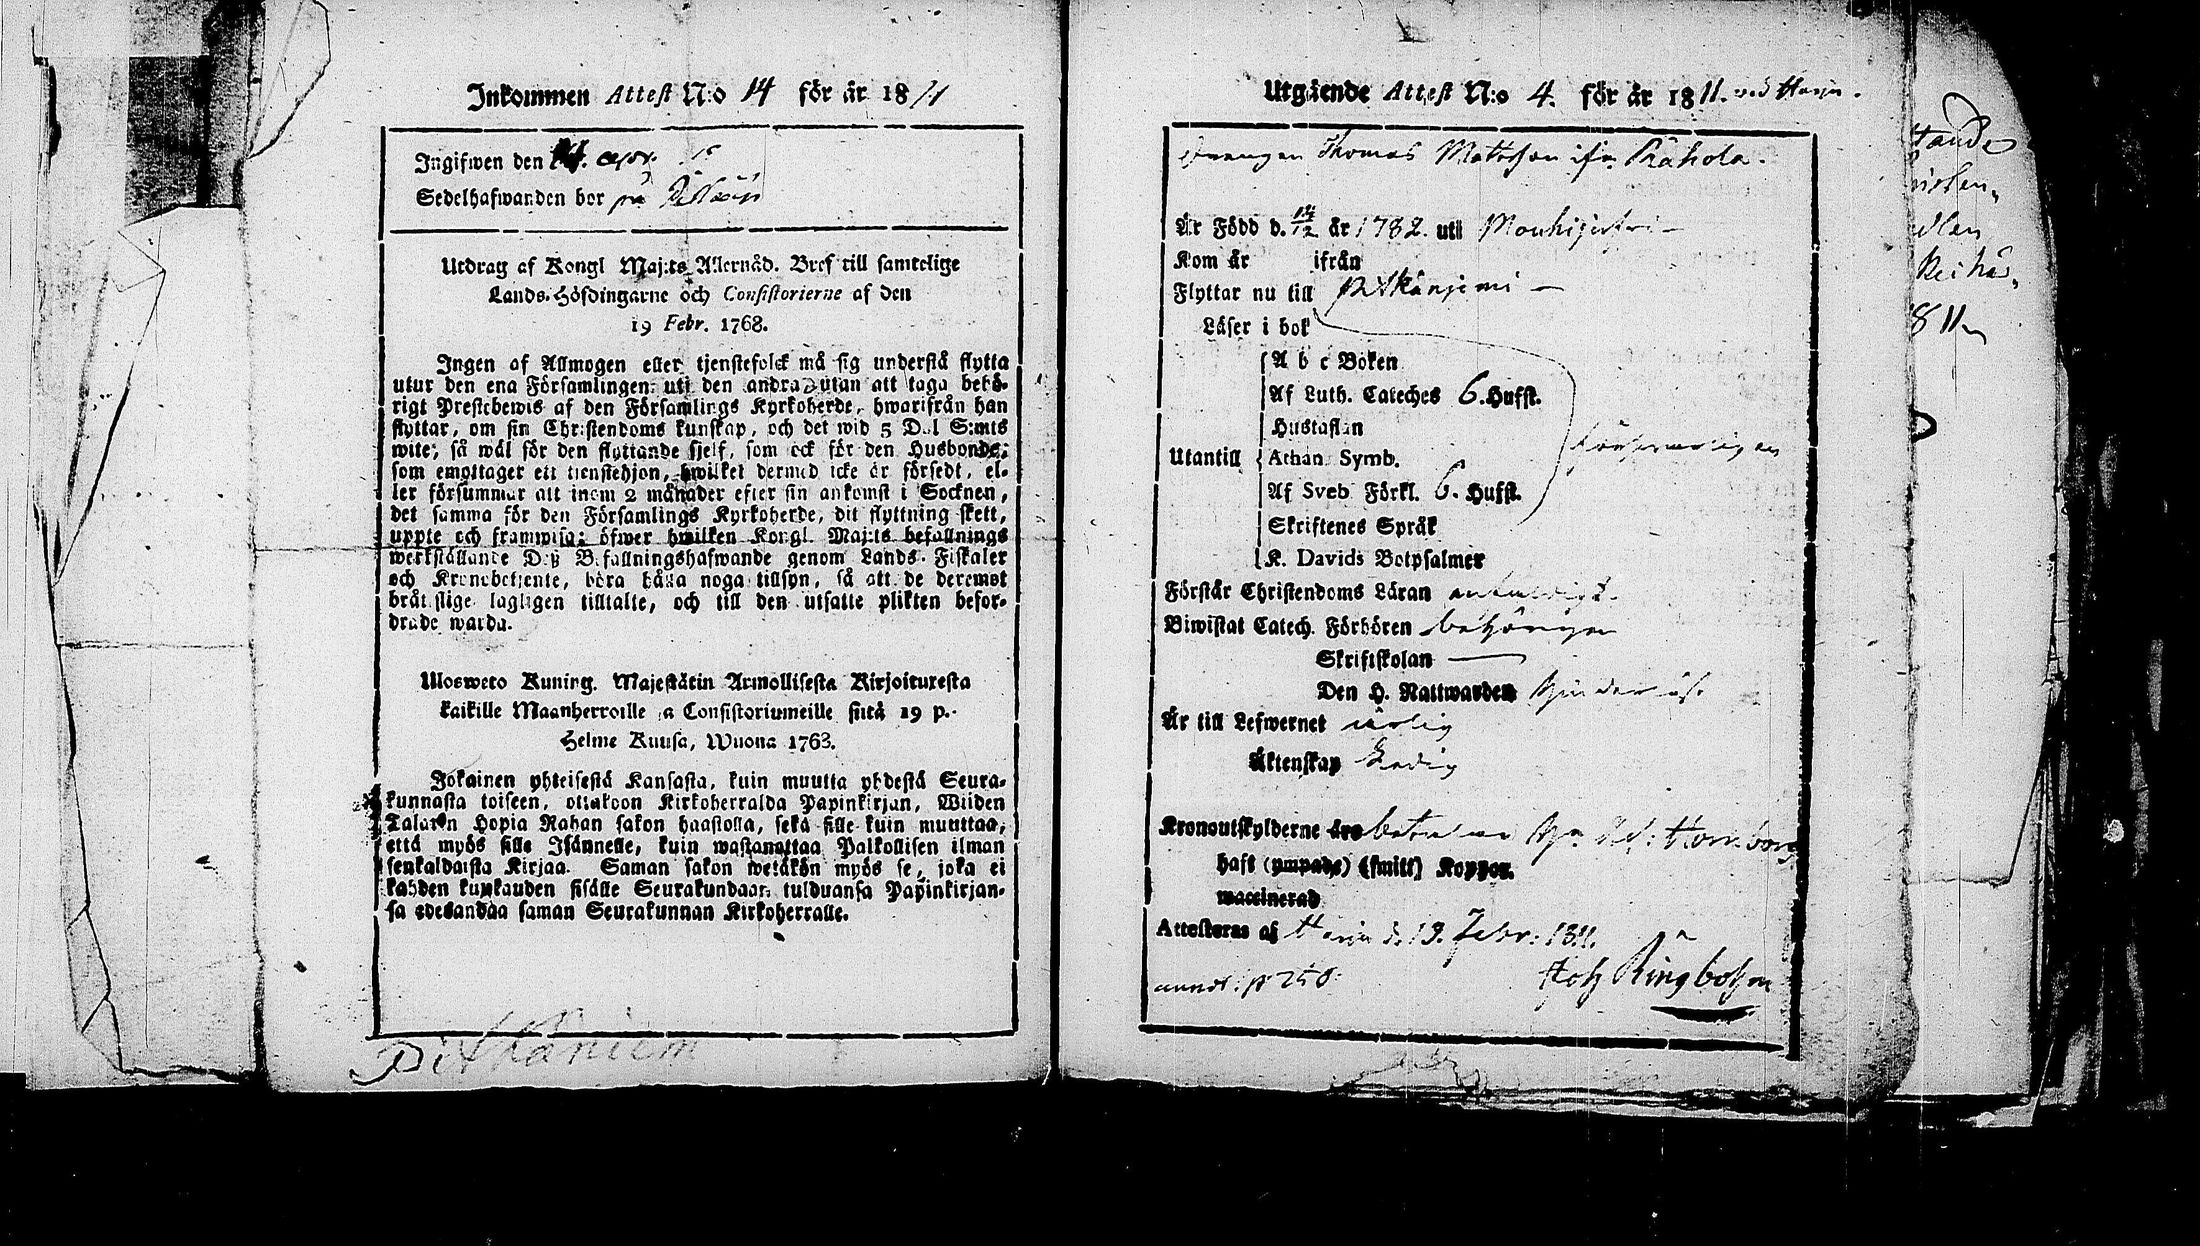 Inkommen Attest N:o 14 för år 1811
Ingifwen den apr.
Sedelhafwanden bor på
Utdrag af Kongl Maj:ts Allernåd. Bref till samtelige
Lands-Höfdingarne och Consistorierne af den
19 Febr. 1768.
Ingen af Allmogen eller tjenstefolck må sig understå flytta
utur den ena Församlingen uti den andra utan att taga behö-
rigt Prestebewis af den Församlings Kyrkoherde, hwarifrån han
flyttar, om sin Christendoms kunskap, och det wid 5 Dal S:mts
wite; så wäl för den flyttande sjelf, som ock för den Husbonde,
som emottager ett tienstehjon, hwilket dermed icke är försedt, el-
ler försummar att inom 2 månader efter sin ankomst i Socknen,
det samma för den Församlings Kyrkoherde, dit flyttning skett,
uppte och framwisa; öfwer hwilken Kongl. Maj:ts befallnings
werkställande Deß Befallningshafwande genom Lands-Fiskaler
och Kronobetjente, böra hålla noga tillsyn, så att de deremot
bråtslige lagligen tilltalte, och till den utsatte plikten befor-
drade warda.
Ulosweto Kuning. Majestätin Armollisesta Kirjoituxesta
kaikille Maanherroille ja Consistoriumeille siitä 19 p.
Helme Kuusa, Wuona 1763.
Jokainen yhteisestä Kansasta, kuin muutta yhdestä Seura-
kunnasta toiseen, ottakoon Kirkoherralda Papinkirjan, Wiiden
Talarin Hopia Rahan sakon haastolla, sekä sille kuin muuttaa,
että myös sille Isännelle, kuin wastanottaa Palkollisen ilman
senkaldaista Kirjaa. Saman sakon wetäkön myös se, joka ei
kahden kuukauden sisälle Seurakundaan tulduansa Papinkirjan-
sa edesandaa saman Seurakunnan Kirkoherralle.
Utgående Attest N:o 4. för år 1811. wid Harju.
Drängen Thomas Mattsson ifrn Rahola.
Är Född d. 12 år 1782. uti Mouhijerfwi
Kom år ifrån
Flyttar nu till Pitkänjemi
Läser i bok
A b c Boken
Af Luth. Cateches 6. Hufst.
Hustaflan
Utantill Athan. Symb.
Af Sveb Förkl. 6. Hufst.
Skriftenes Språk
K. Davids Botpsalmer
Förstår Christendoms Läran
Biwistat Catech. Förhören behörigen
Skriftskolan
Den H. Nattwarden
Är till Lefwernet ärlig
Äktenskap Ledig
Kronoutskylderne äro
haft (ympade) (smitt) Koppor.
waccinerad
Attesteras af Harju d. 19. Febr. 1811.
p 250.
Joh Ringbohm